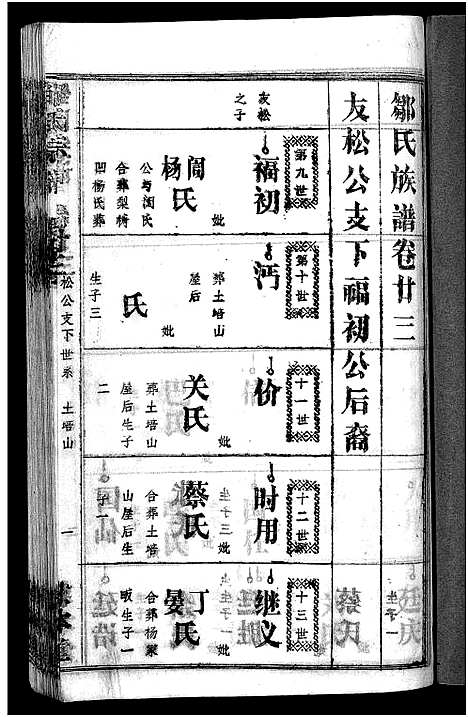 鄒氏族譜卷廿三
友松公支下福初公后裔
友松
之子
第九世
福初
妣
阎氏
杨氏
公与阎氏
合葬梨树
凹杨氏葬
第十世
沔
葬土培山
屋后
妣
氏
生子三
十一世
价
妣
关氏
葬土培山
屋后生子
二
十二世
时用
生子三妣
蔡氏
合葬土培
山屋后生
子一
十三世
继义
妣
丁氏
晏氏
合葬杨家
生子一
松公支下世系
土培山
一